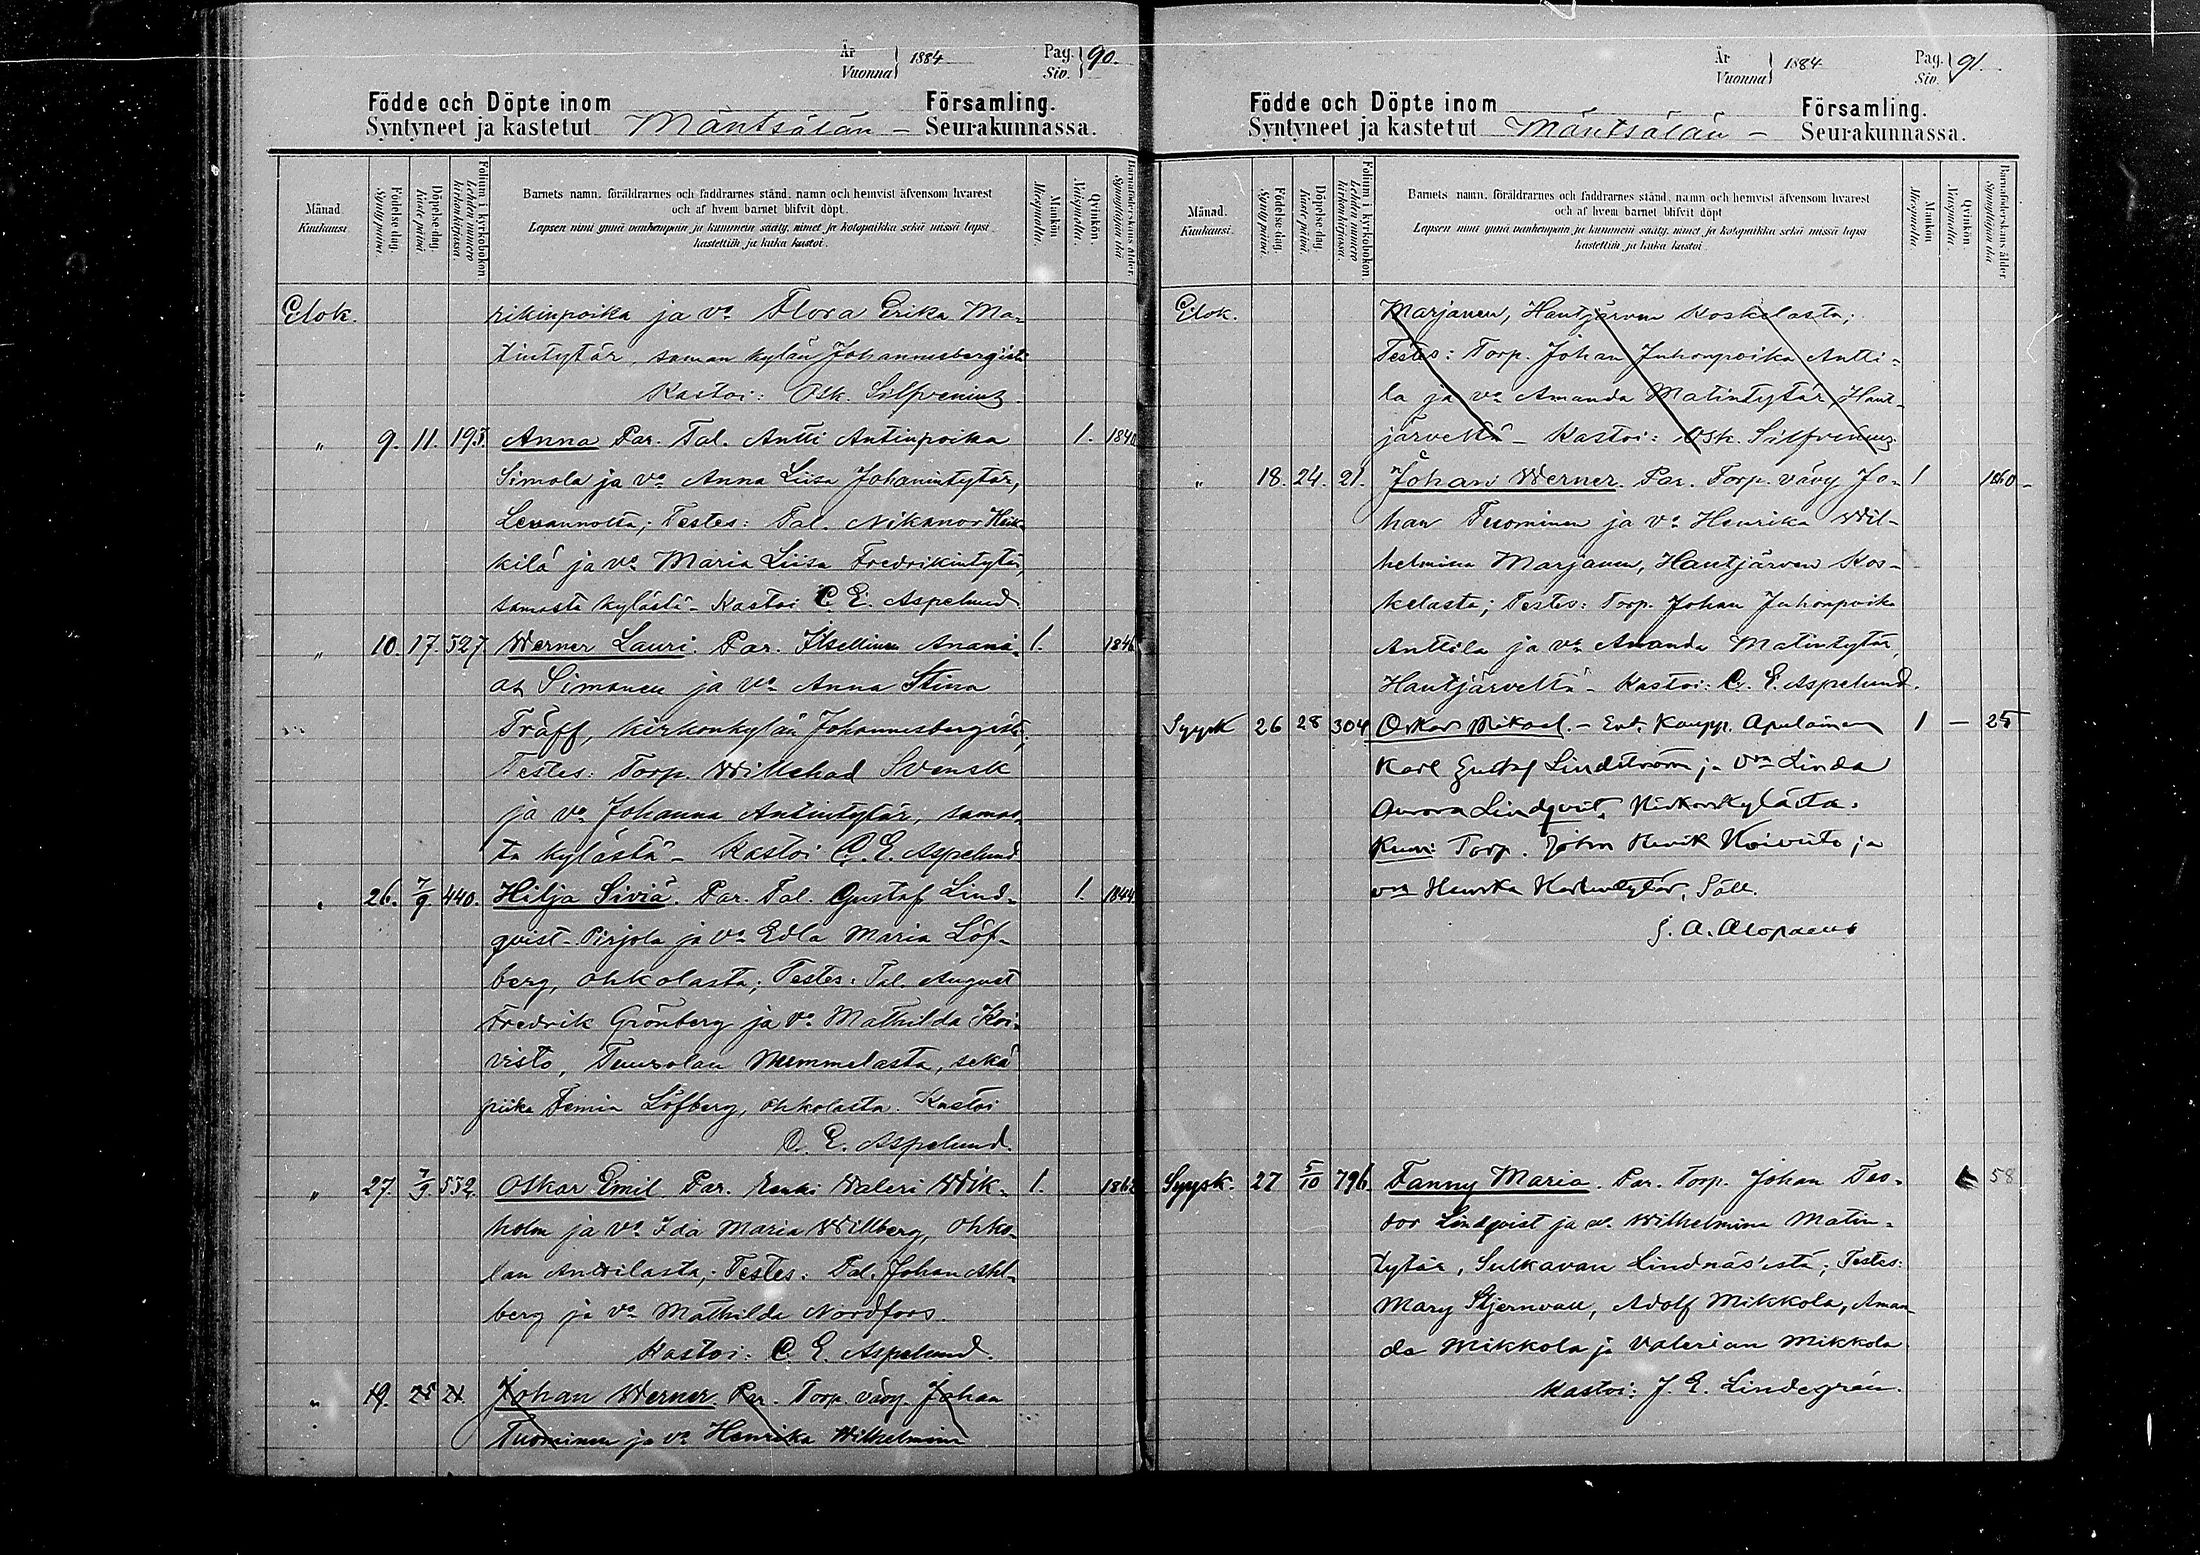 År
Vuonna
1884
Pag.
Siv.
90.
Födde och Döpte inom Församling.
Syntyneet ja kastetut Mäntsälän – Seurakunnassa.
Månad.
Kuukausi.
Födelse dag.
Syntypäivä.
Döpelse dag.
Kastepäivä.
Folium i kyrkoboken.
Lehden numero kirkonkirjassa.
Barnets namn, föräldrarnes och faddrarnes stånd, namn och hemvist äfvensom hvarest
och af hvem barnet blifvit döpt.
Lapsen nimi ynnä vanhempain ja kummein sääty, nimet ja kotopaikka sekä missä lapsi
kastettiin ja kuka kastoi.
Mankön.
Miespuolia.
Qvinkön.
Vaispuolia.
Barnaföderskans ålder.
Synnyttäjän ikä
Elok. rikinpoika ja vo Flora Erika Ma-
tintytär, saman kylän Johannesbergistä
Kastoi: Osk. Silfvenius
" 9. 11. 195. Anna Par. Tal. Antti Antinpoika 1.
Simola ja vo Anna Liisa Johanintytär,
Levannolta; Testes: Tal. Nikanor Heik-
kilä ja vo Maria Liisa Fredrikintytär,
samasta kylästä – Kastoi C. E. Aspelund.
" 10. 17. 527 Werner Lauri. Par. Itsellinen Anani- 1. 1846
as Simonen ja vo Anna Stina
Träff, kirkonkylän Johannesbergistä;
Testes: Torp. Willehad Svensk
ja vo Johanna Antintytär, samas-
ta kylästä – Kastoi C. E. Aspelund
" 26. 7/9. 440. Hilja Siviä. Par. Tal. Gustaf Lind- 1. 1844
qvist-Pirjola ja vo Edla Maria Löf-
berg, Ohkolasta; Testes: Tal. August
Fredrik Grönberg ja vo Mathilda Koi-
visto, Tuusolan Nummelasta, sekä
piika Femia Löfberg, Ohkolasta. Kastoi
C. E. Aspelund.
" 27. 7/9. 552. Oskar Emil. Par. Renki Waleri Wik- 1. 1862
holm ja vo Ida Maria Willberg, Ohko-
lan Anttilasta; Testes: Tal. Johan Ahl-
berg ja vo Mathilda Nordfors.
Kastoi: C. E. Aspelund.
" 19. 25 21. Johan Werner Par. Torp. vävy. Johan
Tuominen ja vo Henrika Wilhelmina
År
Vuonna
1884
Pag.
Siv.
91.
Födde och Döpte inom Församling.
Syntyneet ja kastetut Mäntsälän – Seurakunnassa.
Månad.
Kuukausi.
Födelse dag.
Syntypäivä.
Döpelse dag.
Kastepäivä.
Folium i kyrkoboken.
Lehden numero kirkonkirjassa.
Barnets namn, föräldrarnes och faddrarnes stånd, namn och hemvist äfvensom hvarest
och af hvem barnet blifvit döpt
Lapsen nimi ynnä vanhempain ja kummein sääty, nimet ja kotopaikka sekä missä lapsi
kastettiin ja kuka kastoi.
Mankön
Miespuolia
Qvinkön
Vaispuolia.
Barnaföderskans ålder
Synnyttäjän ikä
Elok. Marjanen, Hautjärven Koskelasta;
Testes: Torp. Johan Juhonpoika Antti-
la ja vo Amanda Matintytär, Haut-
järveltä – Kastoi: Osk. Silfvenius
" 18. 24. 21. Johan Werner. Par. Torp. vävy Jo- 1 1860
han Tuominen ja vo Henrika Wil-
helmina Marjanen, Hautjärven Kos-
kelasta; Testes: Torp. Johan Juhonpoika
Anttila ja vo Amanda Matintytär,
Hautjärveltä – Kastoi: C. E. Aspelund.
Syysk 26 28 304 Oskar Mikael. – Ent. Kaupp. Apulainen 1 – 25
Karl Gustaf Lindström ja vmo Linda
Aurora Lindqvist, Kirkonkylästä.
Kum: Torp. John Henrik Koivisto ja
vmo Henrika Säll.
G. A. Alopaeus
Syysk. 27 5/10 796 Fanny Maria. Par. Torp. Johan Teo- 58
dor Lindqvist ja vo Wilhelmina Matin-
tytär, Sulkavan Lindnäs'istä; Testes:
Mary Stjernvall, Adolf Mikkola, Aman-
da Mikkola ja Valerian Mikkola
Kastoi: J. E. Lindegrén.